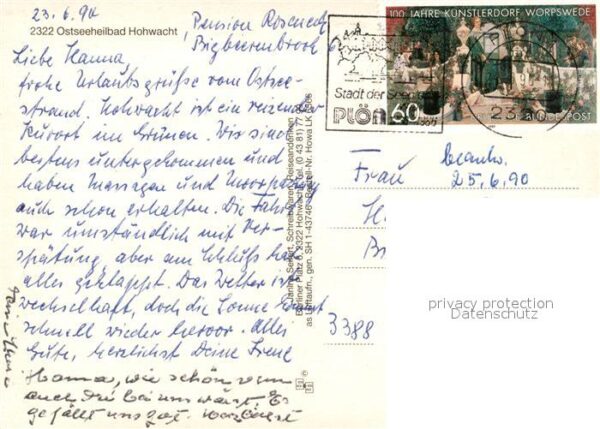 23.6.90
Pension Roseneck
2322 Ostseeheilbad Hohwacht
Bigbeerenbrook 6
Liebe Hanna,
frohe Urlaubsgrüße vom Ostsee-
strand. Hohwacht ist ein reizender
Kurort im Grünen. Wir sind
bestens untergekommen und
haben Massagen und
auch schon erhalten. Die Fahrt
war umständlich mit Ver-
spätung, aber am Schluß hat
alles geklappt. Das Wetter ist
wechselhaft, doch die Sonne kommt
schnell wieder hervor. Alles
Gute, herzlichst Deine Irene
Hanna, wie schön wenn
auch Du bei uns wärst. Es
gefällt uns gut.
100 JAHRE KÜNSTLERDORF WORPSWEDE
60
DEUTSCHE BUNDESPOST
Stadt der Seen
PLÖN
Frau
beantw.
25.6.90
H
B
3388
Janine Seifert, Schreibwaren, Reiseandenken
Berliner Platz 6, 2322 Hohwacht, Tel. (0 43 81) 77
as Luftaufn., gen. SH 1-43746 Bestell-Nr. Howa LK
privacy protection
Datenschutz